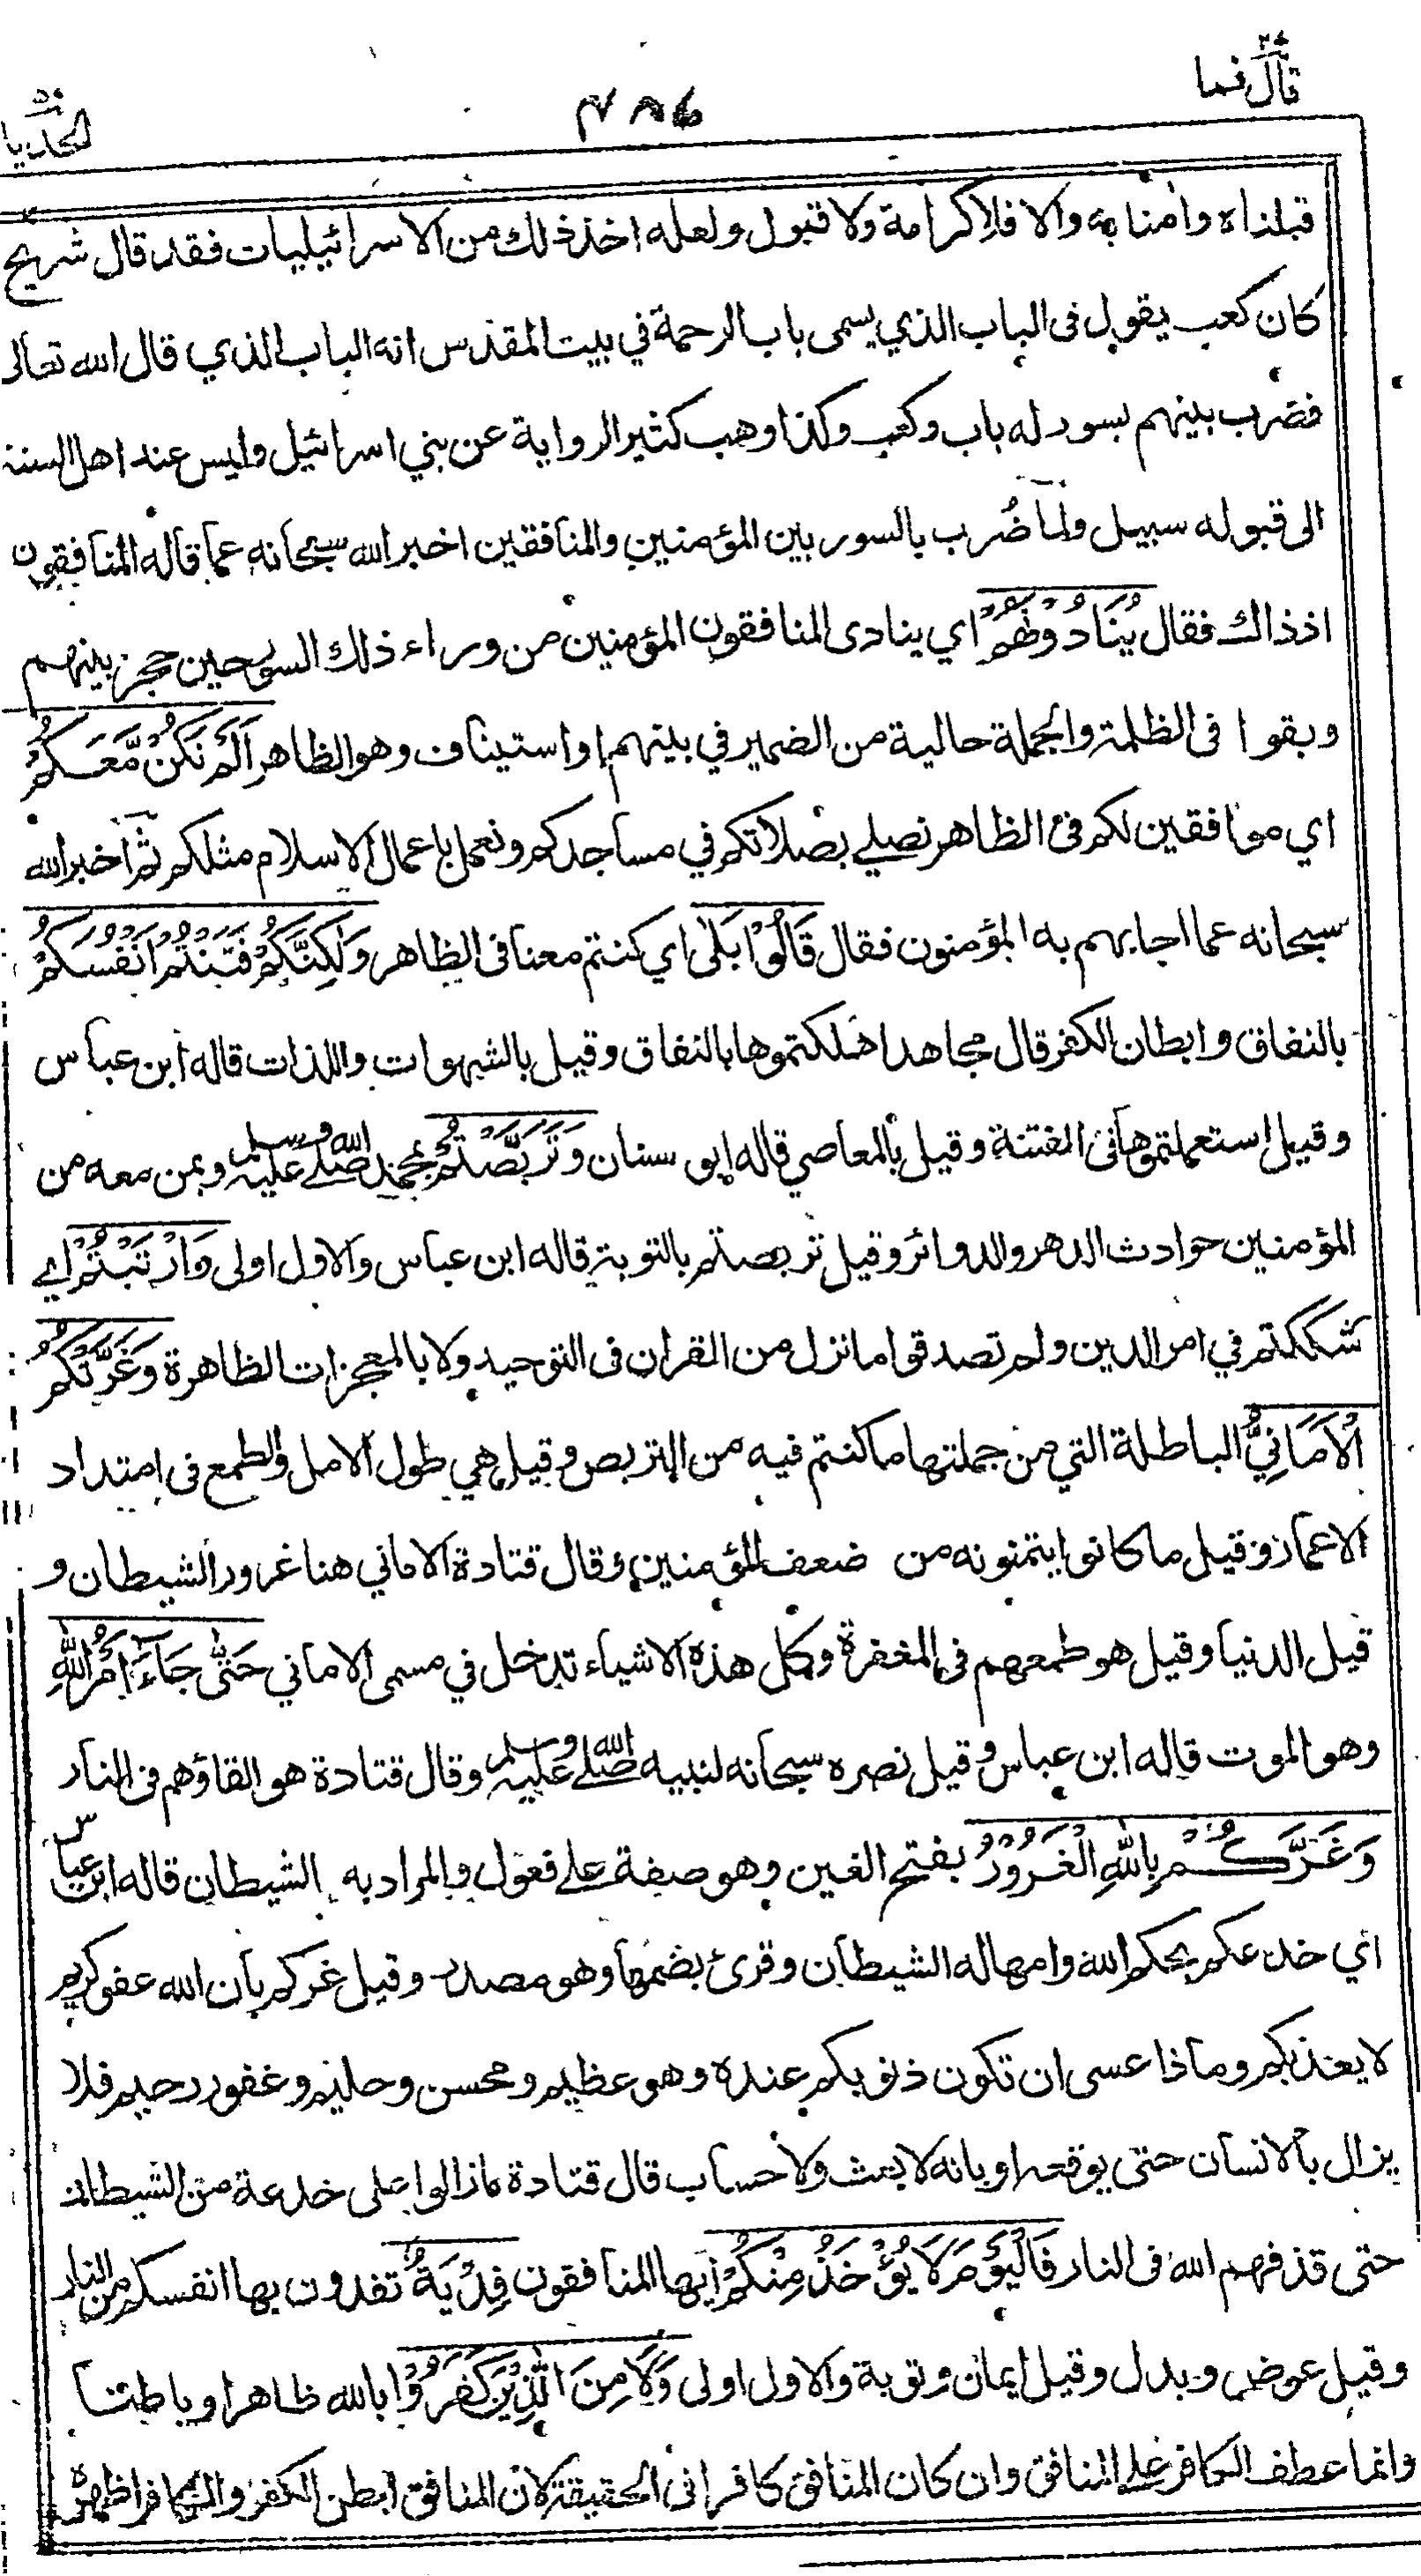 قال فما ٢٧
الحديد ٥٧
قبلناه وامنا به والا فلا كرامة ولا قبول ولعله اخذ ذلك من الاسرائيليات فقد قال شريح
كان كعب يقول فى الباب الذي يسمى باب الرحمة في بيت المقدس انه الباب الذي قال الله تعالى
فضرب بينهم بسور له باب وكعب وكذا وهب كثير الرواية عن بني اسرائيل وليس عند اهل السنة
الى قبوله سبيل ولما ضُرب بالسور بين المؤمنين والمنافقين اخبر الله سبحانه عما قاله المنافقون
اذ ذاك فقال يُنَادُوْنَهُمْ اي ينادى المنافقون المؤمنين من وراء ذلك السور حين حجز بينهم
وبقوا فى الظلمة والجملة حالية من الضمير في بينهم او استيناف وهو الظاهر اَلَمْ نَكُنْ مَّعَكُمْ
اي موافقين لكم فى الظاهر نصلي بصلاتكم في مساجدكم ونعمل باعمال الاسلام مثلكم ثم اخبر الله
سبحانه عما اجابهم به المؤمنون فقال قَالُوْا بَلٰى اي كنتم معنا فى الظاهر وَلٰكِنَّكُمْ فَتَنْتُمْ اَنْفُسَكُمْ
بالنفاق وابطان الكفر قال مجاهد اهلكتموها بالنفاق وقيل بالشهوات واللذات قاله ابن عباس
وقيل استعملتموها فى الفتنة وقيل بالمعاصي قاله ابو سنان وَتَرَبَّصْتُمْ بمحمد صلى الله عليه وسلم وبمن معه من
المؤمنين حوادث الدهر والدوائر وقيل تربصتم بالتوبة قاله ابن عباس والاول اولى وَارْتَبْتُمْ اي
شككتم في امر الدين ولم تصدقوا ما نزل من القران فى التوحيد ولا بالمعجزات الظاهرة وَغَرَّتْكُمُ
الْاَمَانِيُّ الباطلة التي من جملتها ما كنتم فيه من التربص وقيل هي طول الامل والطمع فى امتداد
الاعمار وقيل ما كانوا يتمنونه من ضعف المؤمنين وقال قتادة الاماني هنا غرور الشيطان و
قيل الدنيا وقيل هو طمعهم فى المغفرة وكل هذه الاشياء تدخل في مسمى الاماني حَتّٰى جَآءَ اَمْرُ اللّٰهِ
وهو الموت قاله ابن عباس وقيل نصره سبحانه لنبيه صلى الله عليه وسلم وقال قتادة هو القاؤهم فى النار
وَغَرَّكُمْ بِاللّٰهِ الْغَرُوْرُ بفتح الغين وهو صفة على فعول والمراد به الشيطان قاله ابن عباس
اي خدعكم بحكم الله وامهاله الشيطان وقرئ بضمها وهو مصدر وقيل غركم بان الله عفو كريم
لا يعذبكم وماذا عسى ان تكون ذنوبكم عنده وهو عظيم ومحسن وحليم وغفور رحيم فلا
يزال بالانسان حتى يوقعه او بانه لا بعث ولا حساب قال قتادة مازالوا على خدعة من الشيطان
حتى قذفهم الله فى النار فَالْيَوْمَ لَا يُؤْخَذُ مِنْكُمْ ايها المنافقون فِدْيَةٌ تفدون بها انفسكم من النار
وقيل عوض وبدل وقيل ايمان وتوبة والاول اولى وَلَا مِنَ الَّذِيْنَ كَفَرُوْا بالله ظاهرا وباطنا
وانما عطف الكافر على المنافق وان كان المنافق كافرا فى الحقيقة لان المنافق ابطن الكفر والكافر اظهره